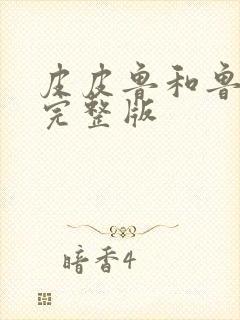 皮皮鲁和鲁
完整版
暗香4